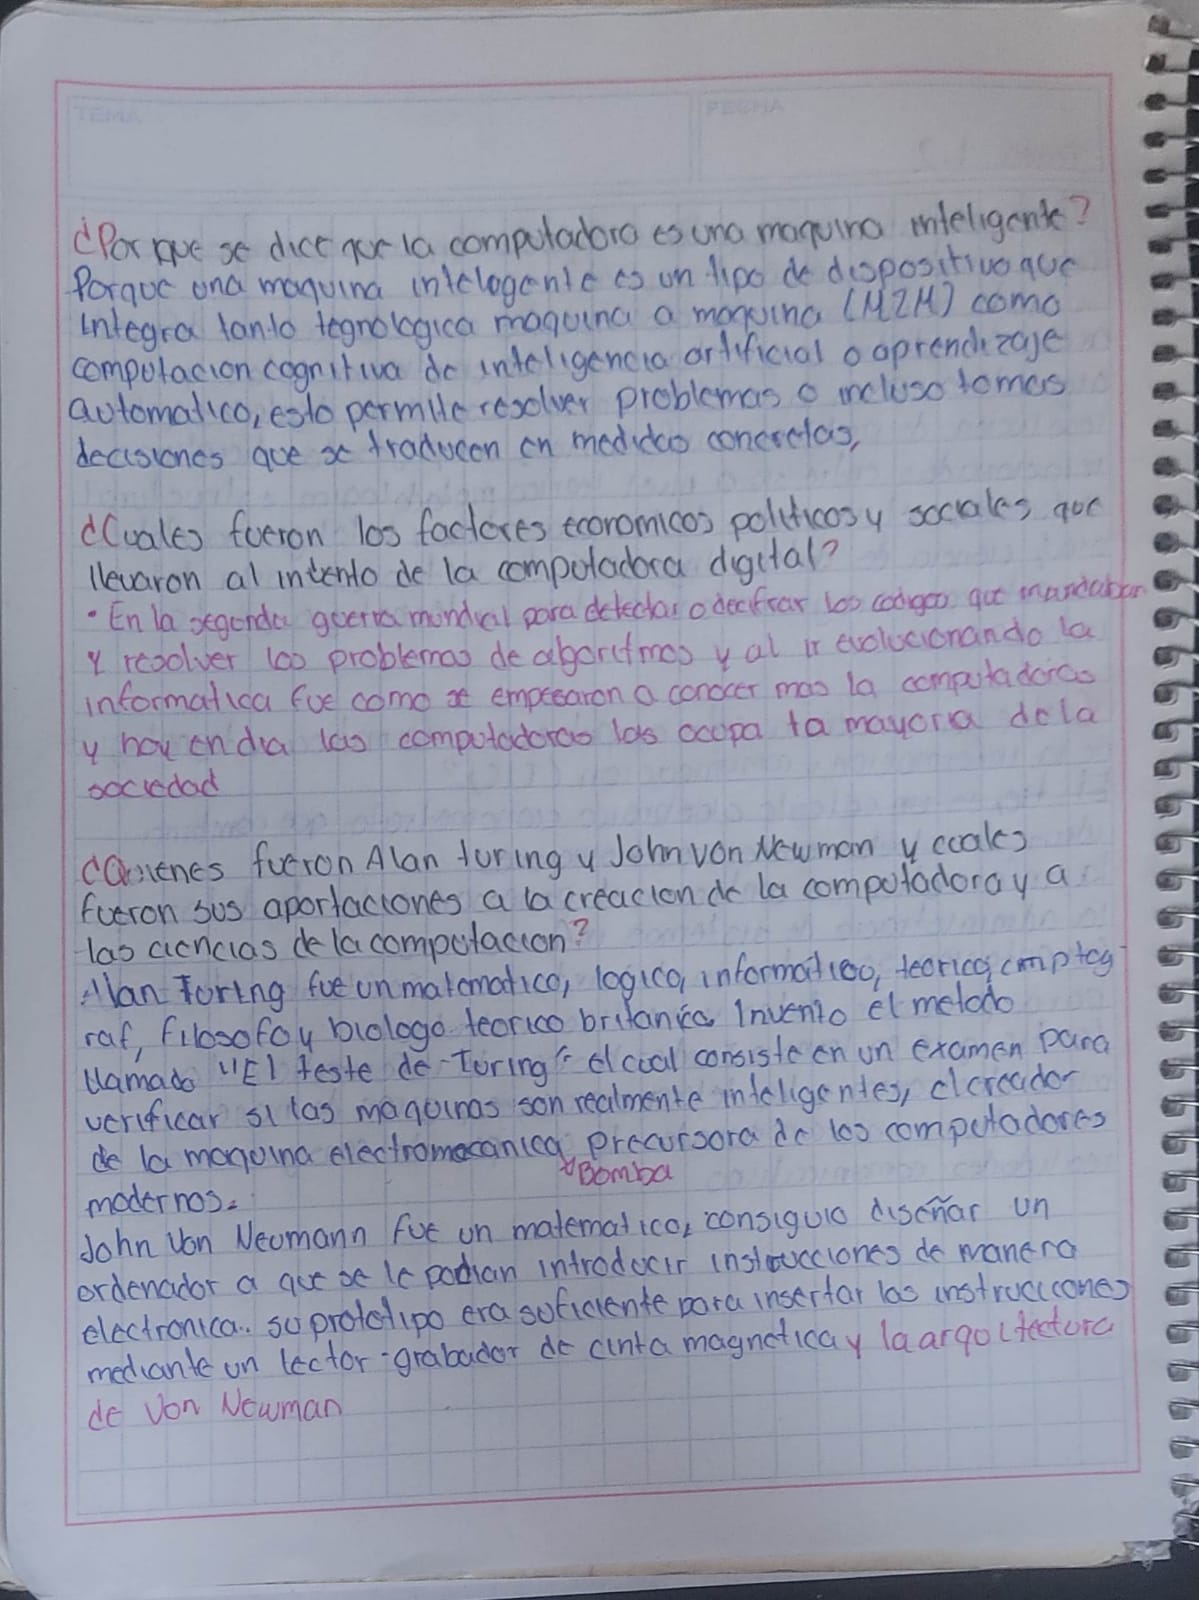 TEMA
FECHA
¿Por que se dice que la computadora es una maquina inteligente?
Porque una maquina intelogente es un tipo de dispositivo que
integra tanto tegnologica maquina a maquina (M2M) como
computacion cognitiva de inteligencia artificial o aprendizaje
automatico, esto permite resolver problemas o incluso tomas
decisiones que se traducen en medidas concretas,
¿Cuales fueron los factores economicos politicos y sociales que
llevaron al intento de la computadora digital?
• En la segunda guerra mundial para detectar o decifrar los codigos que mandaban
Y resolver los problemas de algoritmos y al ir evolucionando la
informatica fue como se empezaron a conocer mas la computadoras
y hoy en dia las computadoras las ocupa la mayoria de la
sociedad
¿Quienes fueron Alan turing y John von Newman y cuales
fueron sus aportaciones a la creacion de la computadora y a
las ciencias de la computacion?
Alan Turing fue un matematico, logico, informatico, teorico, criptog
raf, filosofo y biologo teorico britanico Invento el metodo
llamado "El teste de Turing" el cual consiste en un examen para
verificar si las maquinas son realmente inteligentes, el creador
de la maquina electromecanica precursora de los computadores
Bomba
modernos.
John Von Neumann fue un matematico, consiguio diseñar un
ordenador a que se le podian introducir instrucciones de manera
electronica. su prototipo era suficiente para insertar las instrucciones
mediante un lector-grabador de cinta magnetica y la arquitectura
de Von Newman